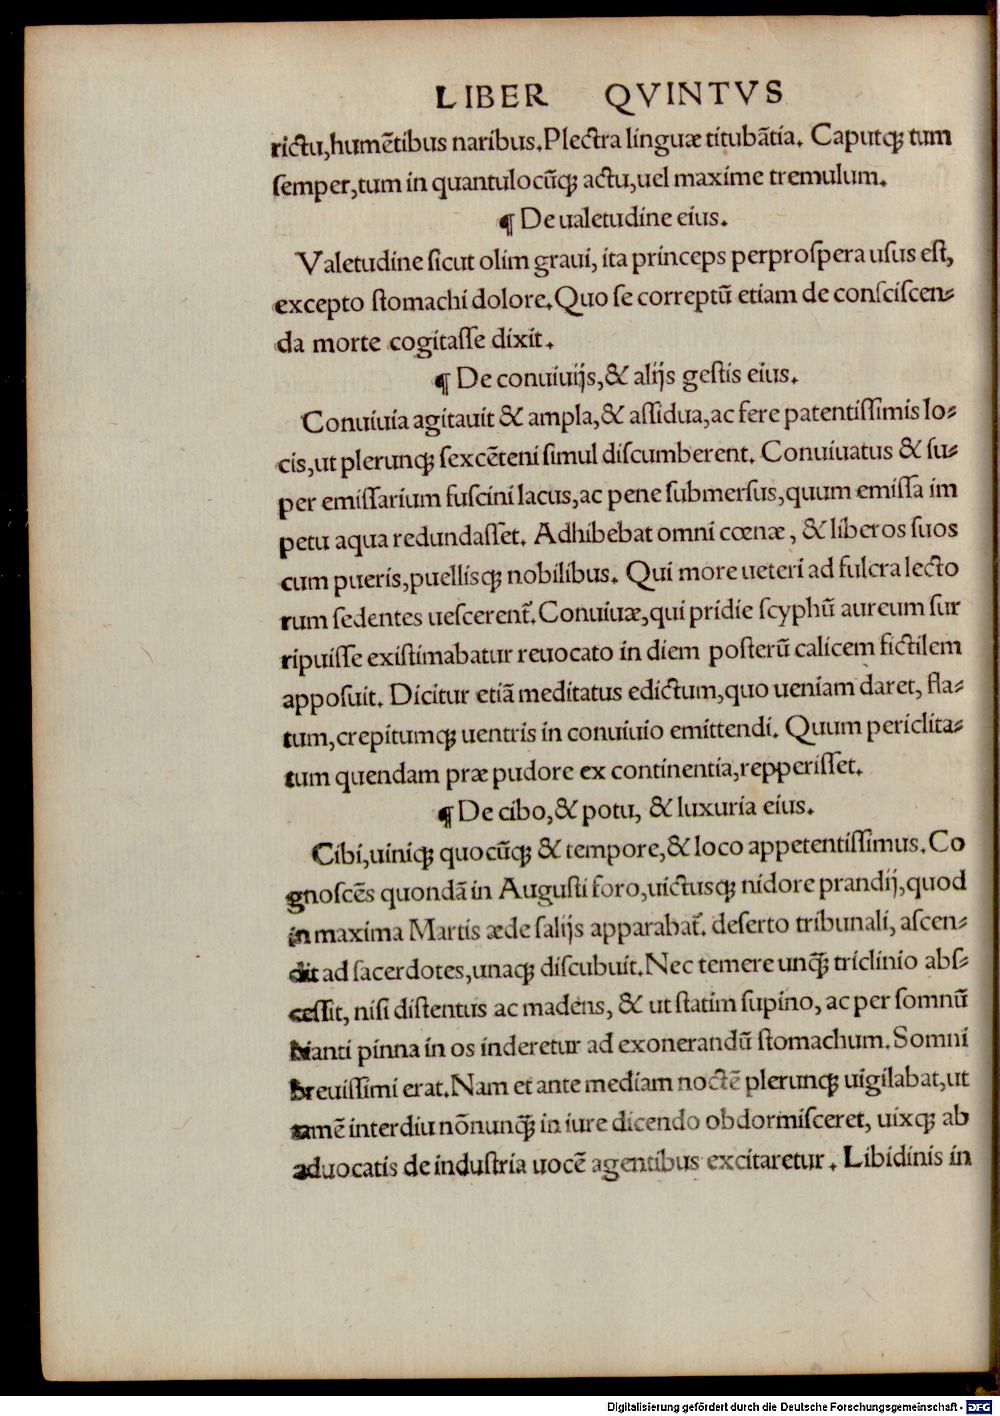 LIBER QVINTVS
rictu,humẽtibus naribus.Plectra linguæ titubãtia. Caputq; tum
ſemper,tum in quantulocũq; actu,uel maxime tremulum.
¶ De ualetudine eius.
Valetudine ſicut olim graui, ita princeps perproſpera uſus eſt,
excepto ſtomachi dolore.Quo ſe correptũ etiam de conſciſcen-
da morte cogitaſſe dixit.
¶ De conuiuijs,& alijs geſtis eius.
Conuiuia agitauit & ampla,& aſſidua,ac fere patentiſſimis lo-
cis,ut plerunq; ſexcẽteni ſimul diſcumberent. Conuiuatus & ſu-
per emiſſarium fuscini lacus,ac pene ſubmerſus,quum emiſſa im
petu aqua redundaſſet. Adhibebat omni cœnæ, & liberos ſuos
cum pueris,puellisq; nobilibus. Qui more ueteri ad fulcra lecto
rum ſedentes ueſcerent̃.Conuiuæ,qui pridie ſcyphũ aureum ſur
ripuiſſe exiſtimabatur reuocato in diem poſterũ calicem fictilem
appoſuit. Dicitur etiã meditatus edictum,quo ueniam daret, fla-
tum,crepitumq; uentris in conuiuio emittendi. Quum periclita-
tum quendam præ pudore ex continentia,repperiſſet.
¶ De cibo,& potu, & luxuria eius.
Cibi,uiniq; quocũq; & tempore,& loco appetentiſſimus.Co
gnoſcẽs quondã in Auguſti foro,uictusq; nidore prandij,quod
in maxima Martis æde ſalijs apparabat̃. deſerto tribunali, aſcen-
dit ad ſacerdotes,unaq; diſcubuit.Nec temere unq̃; triclinio abſ-
ceſſit, niſi diſtentus ac madens, & ut ſtatim ſupino, ac per ſomnũ
hianti pinna in os inderetur ad exonerandũ ſtomachum.Somni
breuiſſimi erat.Nam et ante mediam noctẽ plerunq; uigilabat,ut
tamẽ interdiu nõnunq̃; in iure dicendo obdormiſceret, uixq; ab
aduocatis de induſtria uocẽ agentibus excitaretur. Libidinis in
Digitalisierung gefördert durch die Deutsche Forschungsgemeinschaft - DFG